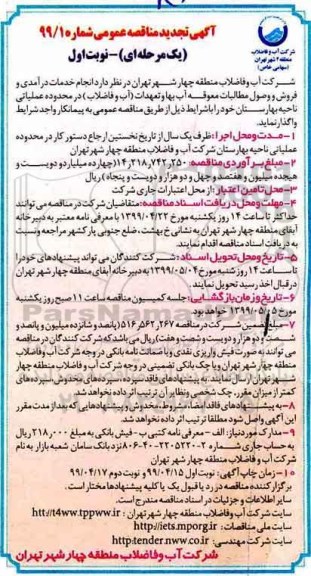 آگهی تجدید مناقصه عمومی شماره ۹۹/۱۰
(یک مرحله ای) - نوبت اول
شرکت آب و فاضلاب
منطقه ۴ شهر تهران
(سهامی خاص)
شرکت آب و فاضلاب منطقه چهار شهر تهران در نظر دارد انجام خدمات درآمدی و
فروش و وصول مطالبات معوقه آب بها و تعهدات (آب و فاضلاب) در محدوده عملیاتی
ناحیه بهارستان خود را با شرایط ذیل از طریق مناقصه عمومی به پیمانکار واجد شرایط
واگذار نماید.
۱- مدت و محل اجرا: ظرف یک سال از تاریخ نخستین ارجاع دستور کار در محدوده
عملیاتی ناحیه بهارستان شرکت آب و فاضلاب منطقه چهار شهر تهران
۲- مبلغ برآوردی مناقصه: ۱۴,۲۱۸,۷۴۲,۲۵۰ (چهارده میلیارد و دویست و
هیجده میلیون و هفتصد و چهل و دو هزار و دویست و پنجاه) ریال
۳- محل تامین اعتبار: از محل اعتبارات جاری شرکت
۴- مهلت و محل دریافت اسناد مناقصه: متقاضیان شرکت در مناقصه می توانند
حداکثر تا ساعت ۱۴ روز یکشنبه مورخ ۱۳۹۹/۰۴/۲۲ با معرفی نامه معتبر به دبیرخانه
آبفای منطقه چهار شهر تهران به نشانی خ بهشت، ضلع جنوبی پارکشهر مراجعه و نسبت
به دریافت اسناد مناقصه اقدام نمایند.
۵- تاریخ و محل تحویل اسناد: شرکت کنندگان می تواند پیشنهادهای خود را
تا ساعت ۱۴ روز شنبه مورخ ۱۳۹۹/۰۵/۰۴ به دبیرخانه آبفای منطقه چهار شهر تهران
در قبال اخذ رسید تحویل نمایند.
۶- تاریخ و زمان بازگشایی: جلسه کمیسیون مناقصه ساعت ۱۱ صبح روز یکشنبه
مورخ ۱۳۹۹/۰۵/۰۵ خواهد بود.
۷- مبلغ تضمین شرکت در مناقصه ۵۱۶,۵۶۲,۲۶۷ (پانصد و شانزده میلیون و پانصد و
شصت و دو هزار و دویست و شصت و هفت) ریال می باشد که شرکت کنندگان در مناقصه
می توانند به صورت فیش واریزی نقدی و یا ضمانت نامه بانکی در وجه شرکت آب و فاضلاب
منطقه چهار شهر تهران و یا چک بانکی تضمینی در وجه شرکت آب و فاضلاب منطقه چهار
شهر تهران ارسال نمایند. به پیشنهادهای فاقد سپرده، سپرده های مخدوش، سپرده های
کمتر از میزان مقرر، چک شخصی و نظایر آن ترتیب اثر داده نخواهد شد.
۸- به پیشنهادهای فاقد امضاء، مشروط، مخدوش و پیشنهادهایی که بعد از مدت مقرر
این آگهی واصل شود مطلقا ترتیب اثر داده نخواهد شد.
۹- مدارک مورد نیاز: الف- معرفی نامه کتبی ب- فیش بانکی به مبلغ ۲۱۸,۰۰۰ ریال
به حساب جاری شماره نزد بانک سامان شعبه بازار به نام
شرکت آب و فاضلاب منطقه چهار شهر تهران
۱۰- زمان چاپ آگهی: نوبت اول ۹۹/۰۴/۱۵ و نوبت دوم ۹۹/۰۴/۱۷
برگزار کننده مناقصه در رد یا قبول یک یا کلیه پیشنهادها مختار است.
سایر اطلاعات و جزئیات در اسناد مناقصه مندرج است.
شرکت آب و فاضلاب منطقه چهار شهر تهران: htt://t4ww.tppww.ir
سایت ملی مناقصات: http//iets.mporg.ir
سایت شرکت مهندسی: http:tender.nww.co.ir
شرکت آب و فاضلاب منطقه چهار شهر تهران